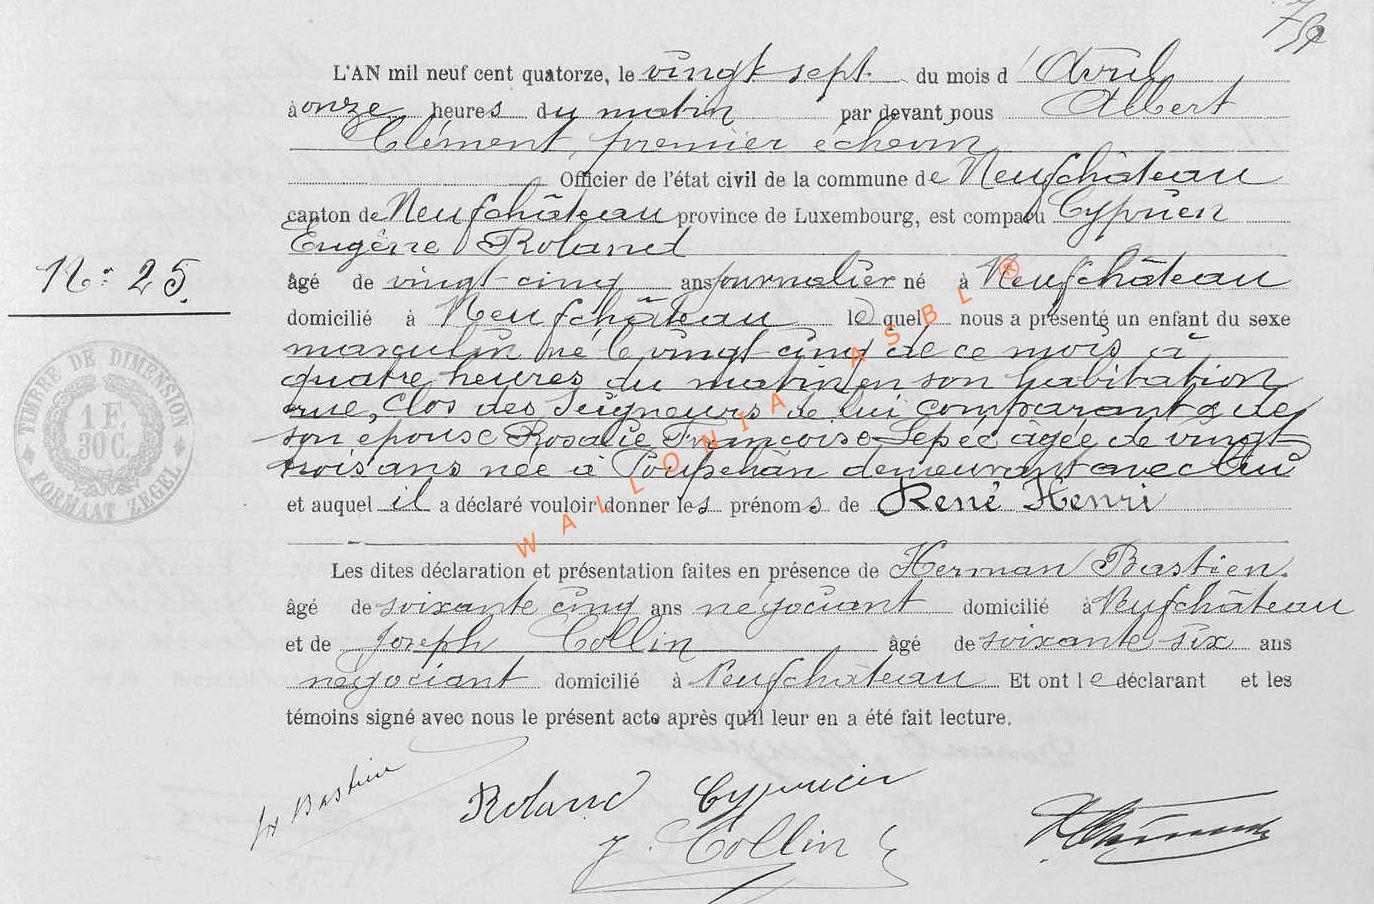 L'AN mil neuf cent quatorze, le vingt sept du mois d'Avril
à onze heures du matin par devant nous Albert
Clément, premier échevin
Officier de l'état civil de la commune de Neufchâteau
canton de Neufchâteau province de Luxembourg, est comparu Cyprien
Eugène Roland
N° 25.
âgé de vingt cinq ans journalier né à Neufchâteau
domicilié à Neufchâteau lequel nous a présenté un enfant du sexe
masculin né le vingt cinq de ce mois à
quatre heures du matin en son habitation
rue, Clos des Seigneurs de lui comparant & de
son épouse Rosalie Françoise Lepée âgée de vingt
trois ans née à Poupehan demeurant avec lui
et auquel il a déclaré vouloir donner les prénoms de René Henri
Les dites déclaration et présentation faites en présence de Herman Bastien
âgé de soixante cinq ans négociant domicilié à Neufchâteau
et de Joseph Collin âgé de soixante six ans
négociant domicilié à Neufchâteau Et ont le déclarant et les
témoins signé avec nous le présent acte après qu'il leur en a été fait lecture.
Bastien
Roland Cyprien
J. Collin
TIMBRE DE DIMENSION
1 F.
30 C.
FORMAAT ZEGEL
WALLONIA ASBL ®